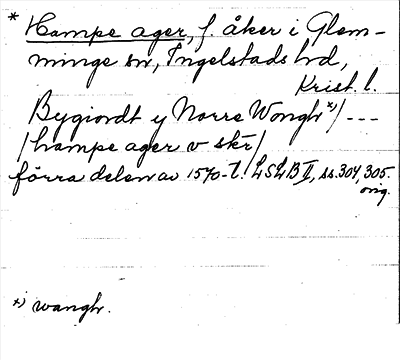 * Hampe ager, f. åker i Glem-
minge sn, Ingelstads hd,
Krist. l.
Bygiordt y Norre Wongh *)/ ---
/hampe ager v skr/
förra delen av 1570-t. LSLB II, ss. 304, 305.
orig.
*) wangh.